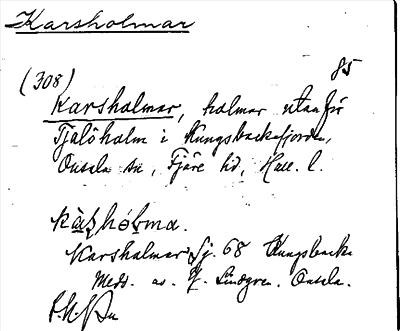 Karsholmar
85
(308)
Karsholmar, holmar utanför
Tjolöholm i Kungsbackafjorden,
Onsala sn, Fjäre hd, Hall. l.
Karsholmar Sj. 68 Kungsbacka
Medd. av Lindgren. Onsala.